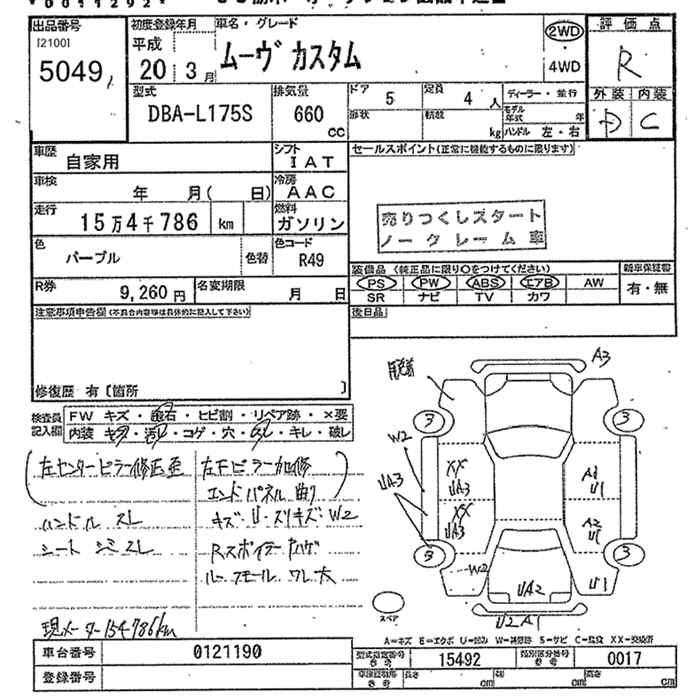 出品番号
[2100]
5049
初度登録年月
平成
20 3月
車名・グレード
ムーヴ カスタム
2WD
・
4WD
評価点
R
外装 内装
D C
型式
DBA-L175S
排気量
660
cc
ドア 5
定員 4人
形状
積載 kg
ディーラー・並行
モデル年式 年
ハンドル 左・右
車歴
自家用
シフト
IAT
車検
年 月( 日)
冷房
AAC
走行
15万4千786 km
燃料
ガソリン
色
パープル
色替
色コード
R49
R券
9,260円
名変期限
月 日
セールスポイント(正常に機能するものに限ります)
売りつくしスタート
ノークレーム車
装備品 (純正品に限り○をつけてください)
PS PW ABS エアB AW
SR ナビ TV カワ
新車保証書
有・無
後日品
注意事項申告欄(不具合内容等は具体的に記入して下さい)
修復歴 有〔箇所 〕
検査員
記入欄
FW キズ・飛石・ヒビ割・リペア跡・×要
内装 キズ・汚レ・コゲ・穴・スレ・キレ・破レ
左センターピラー修正歪
左下ピラー加修
エンドパネル曲り
ハンドル スレ
キズ・U・スリキズ W2
シート シミスレ
Rスポイラー
ルーフモール ワレ大
現メーター154,786km
A3
3
3
W2
UA3
XX
UA3
XX
UA3
A2
U1
3
3
W2
UA2
U1
U2 A1
スペア
A=キズ E=エクボ U=凹み W=補修跡 S=サビ C=腐食 XX=交換済
車台番号
0121190
登録番号
型式指定番号
参考
15492
類別区分番号
参考
0017
車譲証明席
参考
長さ cm
幅 cm
高さ cm